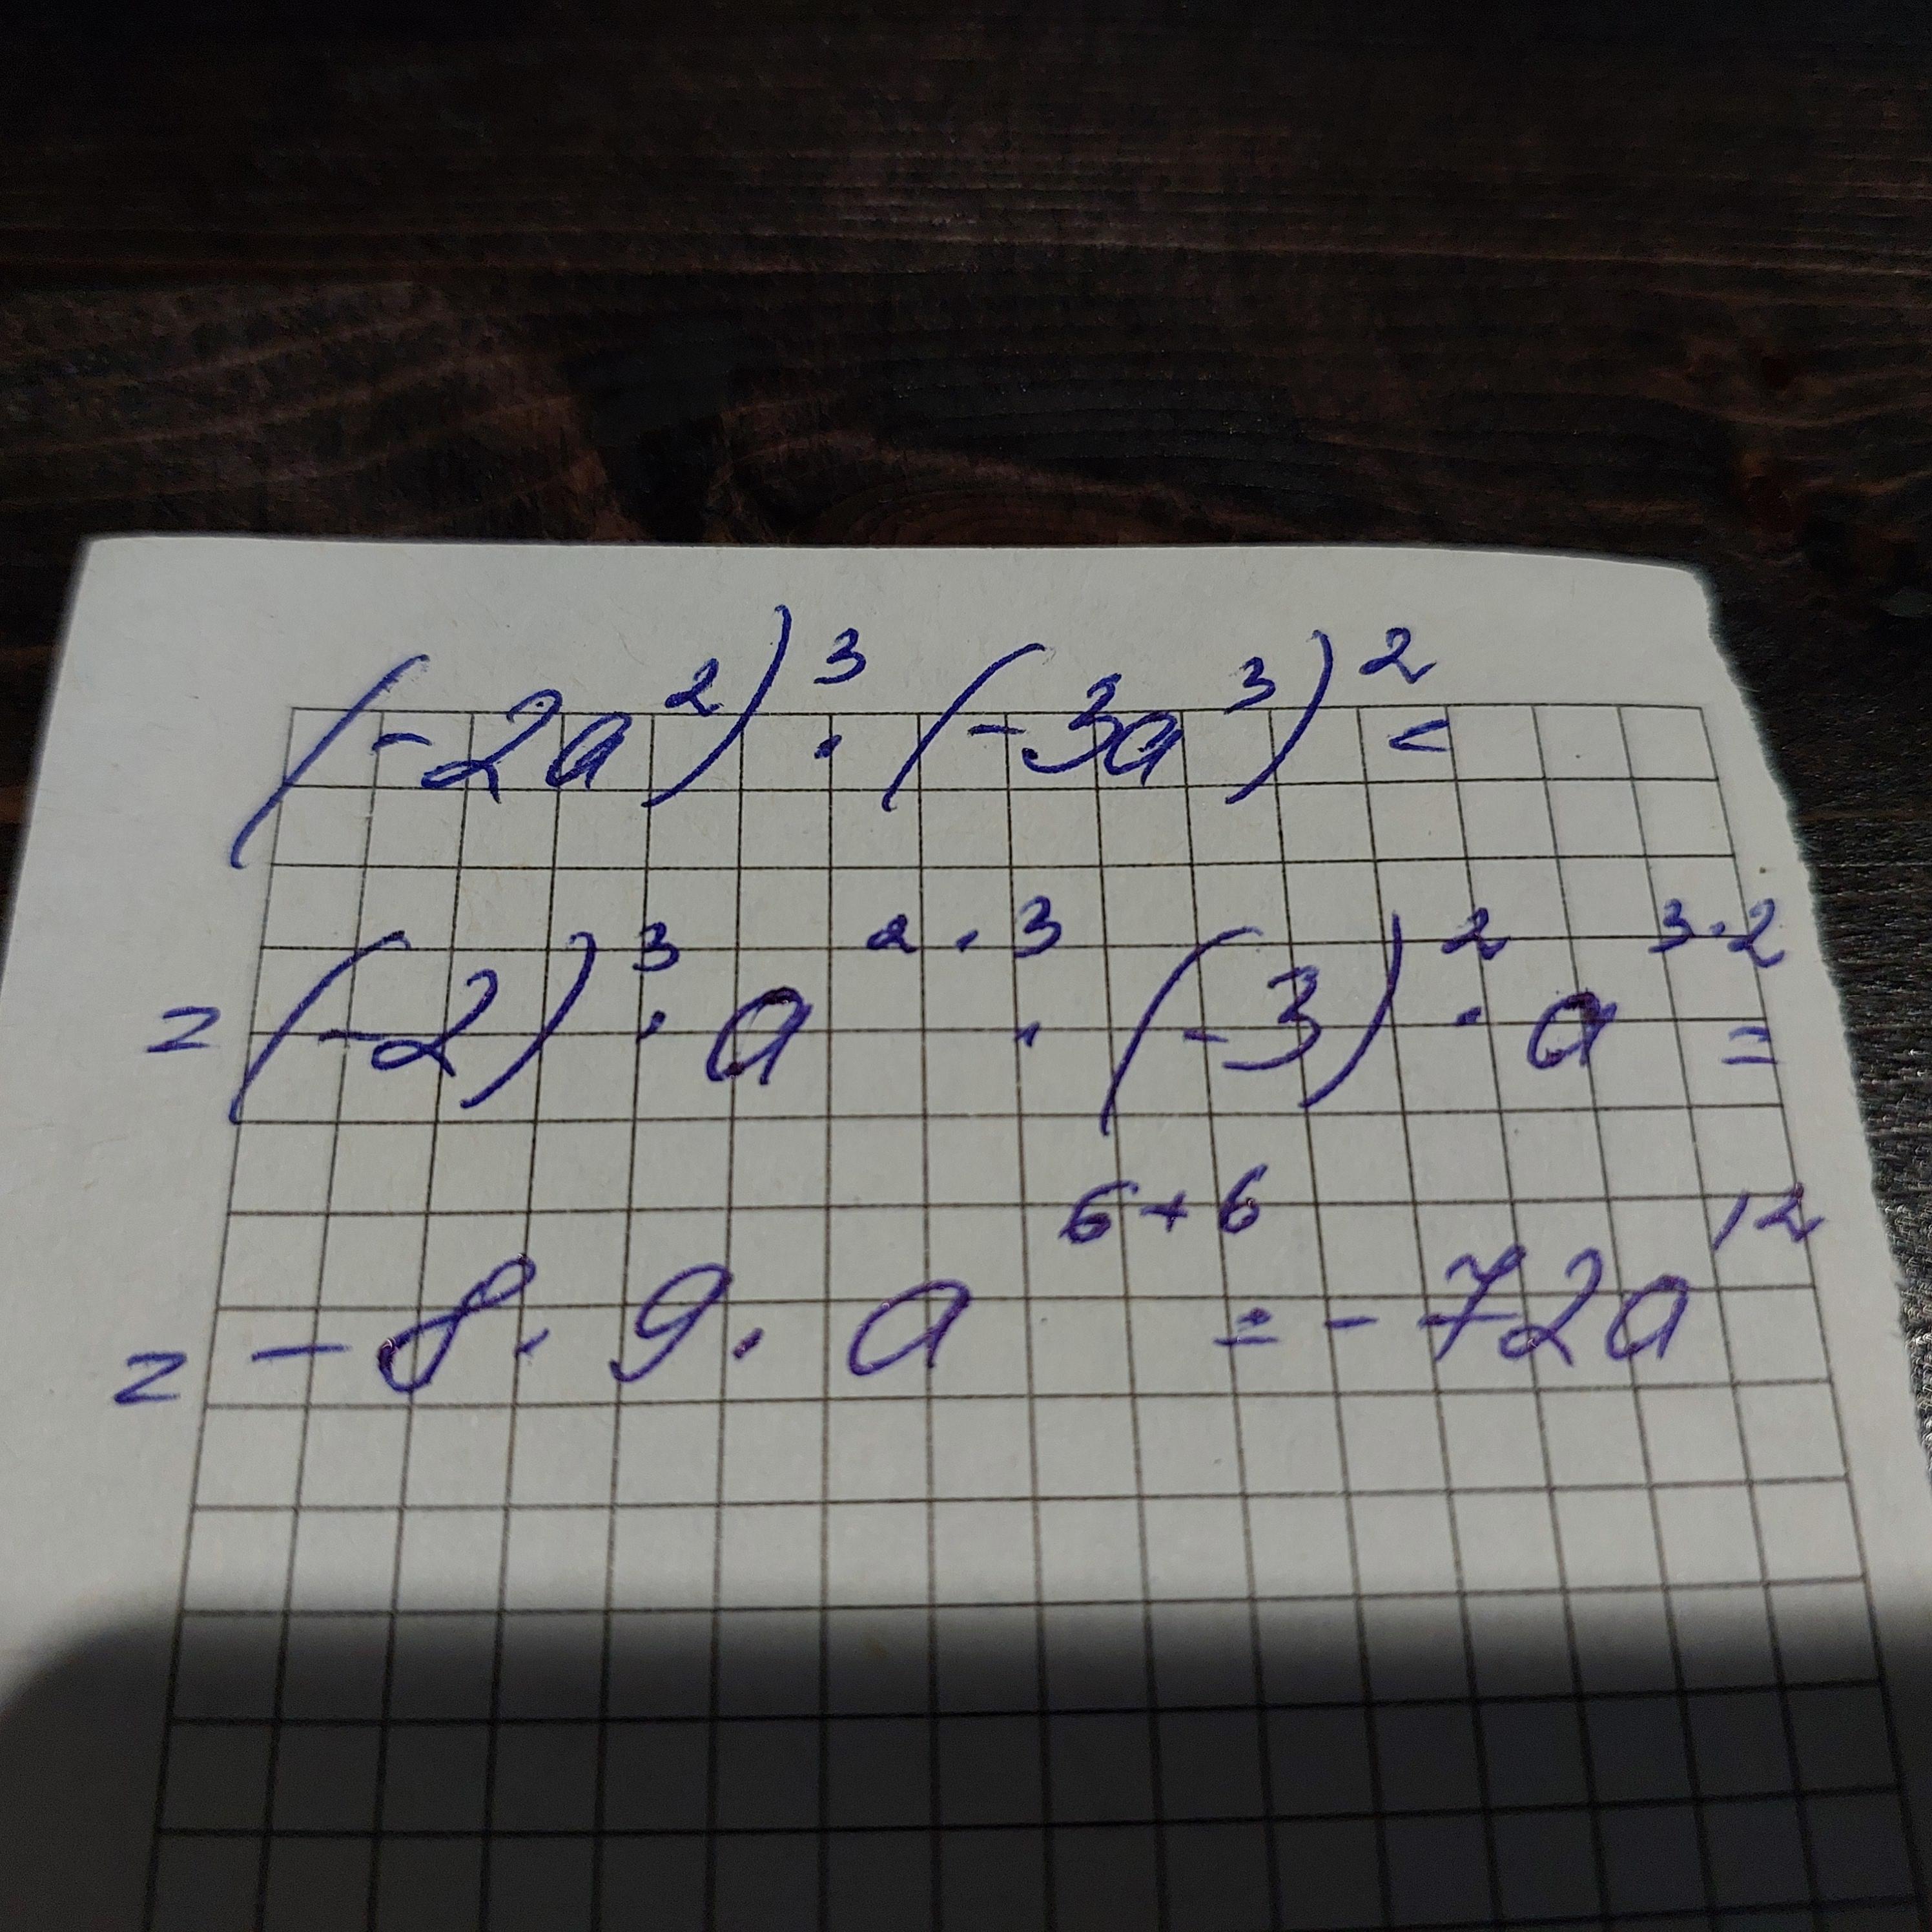 (-2a²)³ · (-3a³)² =
= (-2)³ · a²·³ · (-3)² · a³·² =
= - 8 · 9 · a⁶⁺⁶ = - 72a¹²